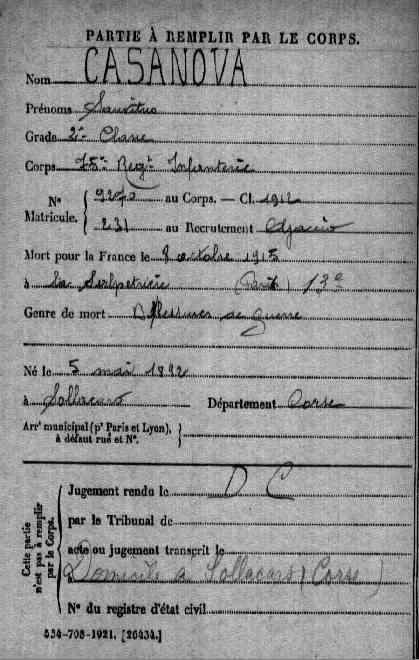 PARTIE À REMPLIR PAR LE CORPS.
Nom CASANOVA
Prénoms
Grade 2e Classe
Corps 75e Régt Infanterie
N° Matricule. { 9270 au Corps. — Cl. 1912
231 au Recrutement Ajaccio
Mort pour la France le 8 octobre 1915
à la Salpetrière (Paris) 13e
Genre de mort Blessures de guerre
Né le 5 mai 1892
à Sollacaro Département Corse
Arrt municipal (pr Paris et Lyon), à défaut rue et N°. }
Cette partie n'est pas à remplir par le Corps.
Jugement rendu le D C
par le Tribunal de
acte ou jugement transcrit le
à Domicile à Sollacaro (Corse)
N° du registre d'état civil
534-708-1921. [26434.]